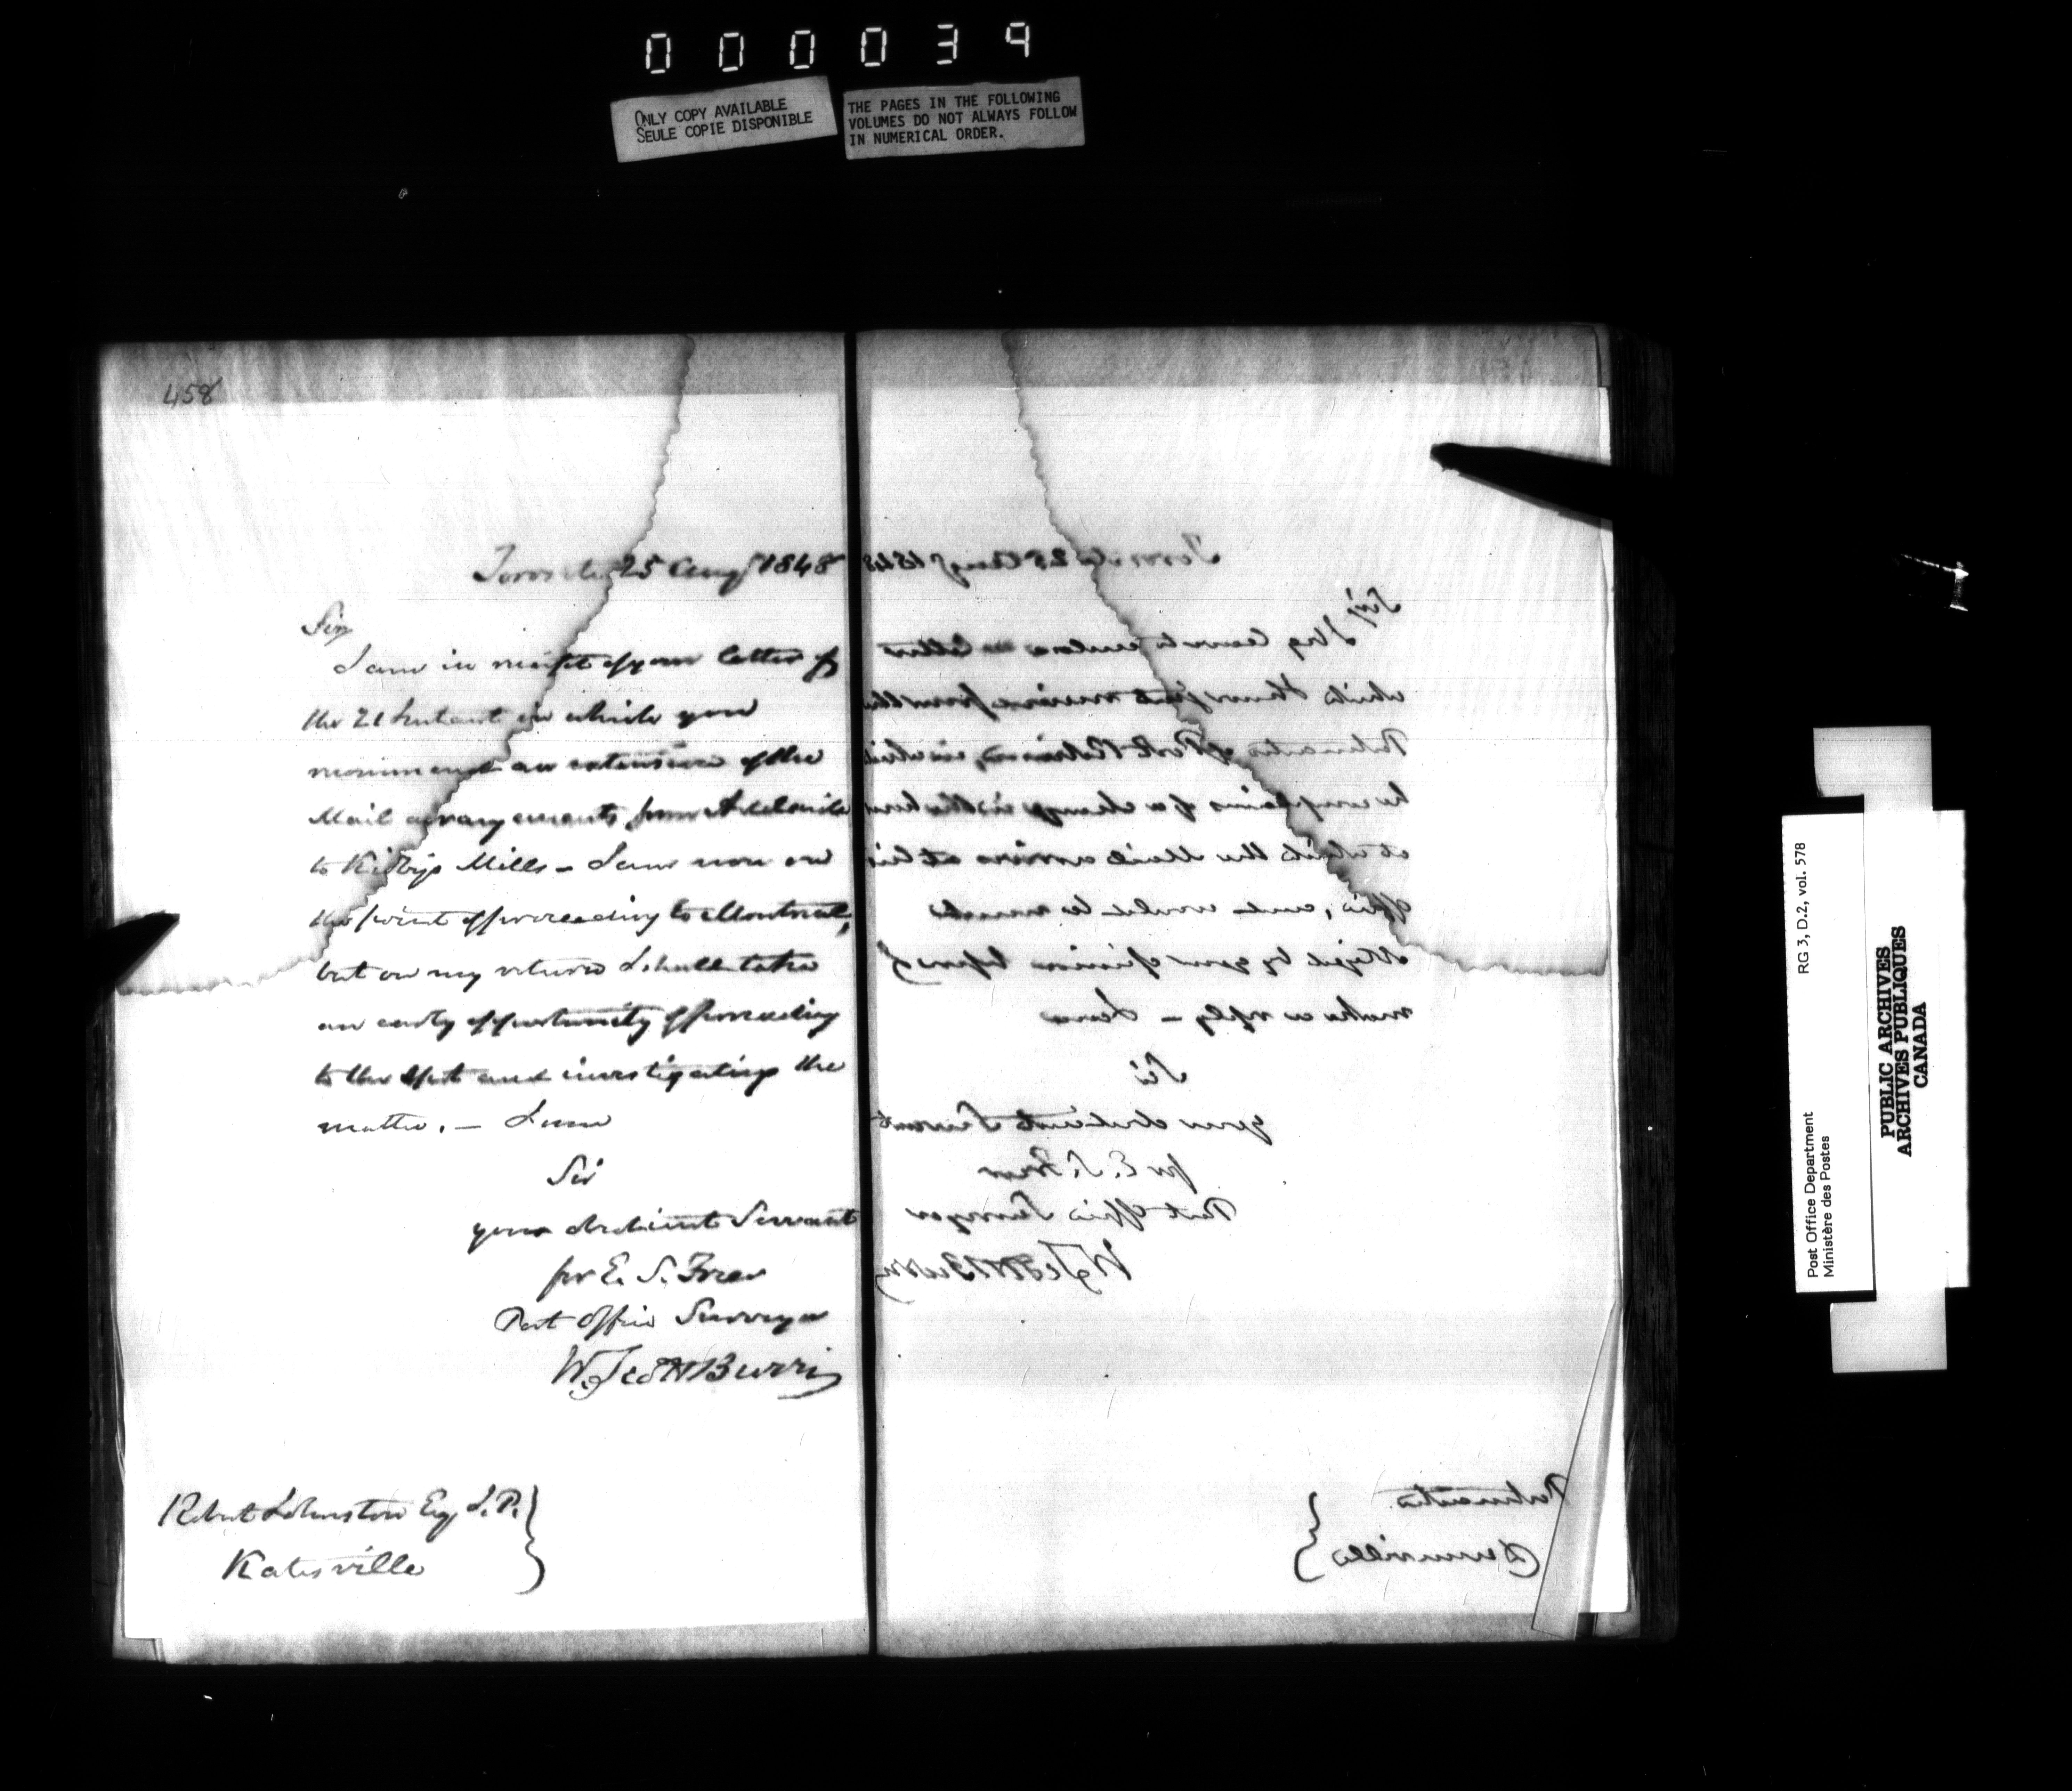 000039
ONLY COPY AVAILABLE
SEULE COPIE DISPONIBLE
THE PAGES IN THE FOLLOWING
VOLUMES DO NOT ALWAYS FOLLOW
IN NUMERICAL ORDER.
458
Toronto 25 Augt 1848
Sir,
I am in receipt of your letter of
the 21st Instant in which you
recommend an extension of the
Mail arrangements from Adelaide
to Mills – I am now on
the point of proceeding to Montreal,
but on my return I shall take
an early opportunity of proceeding
to the Spot and investigating the
matter. – I am
Sir
your obedient Servant
for E. S. Freer
Post Office Surveyor
W. Scott Burn
Robert Johnston Esq J.P.
Katesville
Toronto 25 Augt 1848
Sir,
I beg leave to enclose a letter
which I have just received from the
Postmaster of Port Robinson, in which
he complains of a change in the hour
at which the Mail arrives at his
office, and would be much
obliged by your opinion before I
make a reply – I am
Sir
your obedient Servant
for E. S. Freer
Post Office Surveyor
W. Scott Burn
Postmaster
Dunnville
Post Office Department
Ministère des Postes
RG 3, D.2, vol. 578
PUBLIC ARCHIVES
ARCHIVES PUBLIQUES
CANADA